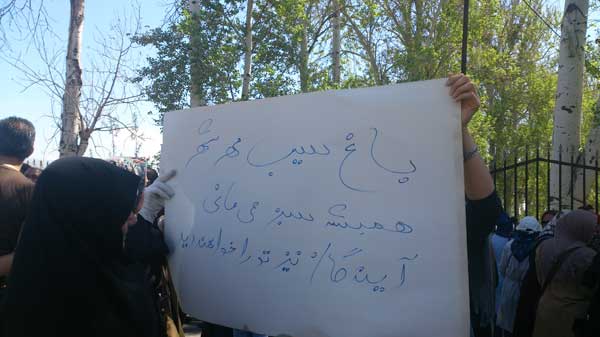 باغ سیب مهرشهر
همیشه سبز می مانی
آیندگان نیز تو را خواهند دید